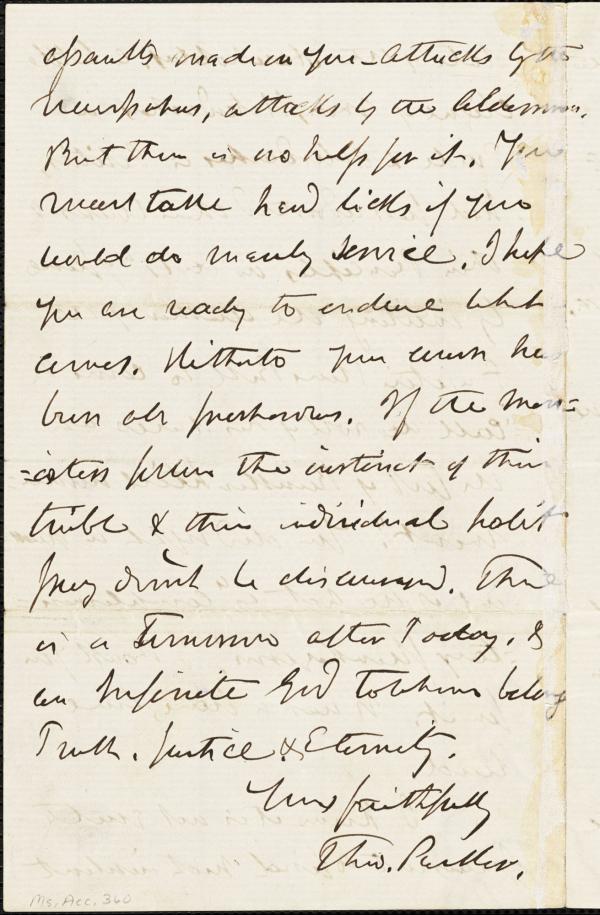 assaults made on you – attacks by the
newspapers, attacks by the Aldermen.
But there is no help for it. You
must take hard licks if you
would do manly service. I hope
you are ready to endure what
comes. Hitherto your course has
been all prosperous. If the Min=
=isters follow the instinct of their
tribe & their individual habit
pray don't be discouraged. There
is a Tomorrow after Today, &
an Infinite God to whom belong
Truth, Justice & Eternity.
Yours faithfully
Theo. Parker.
Ms. Acc. 360